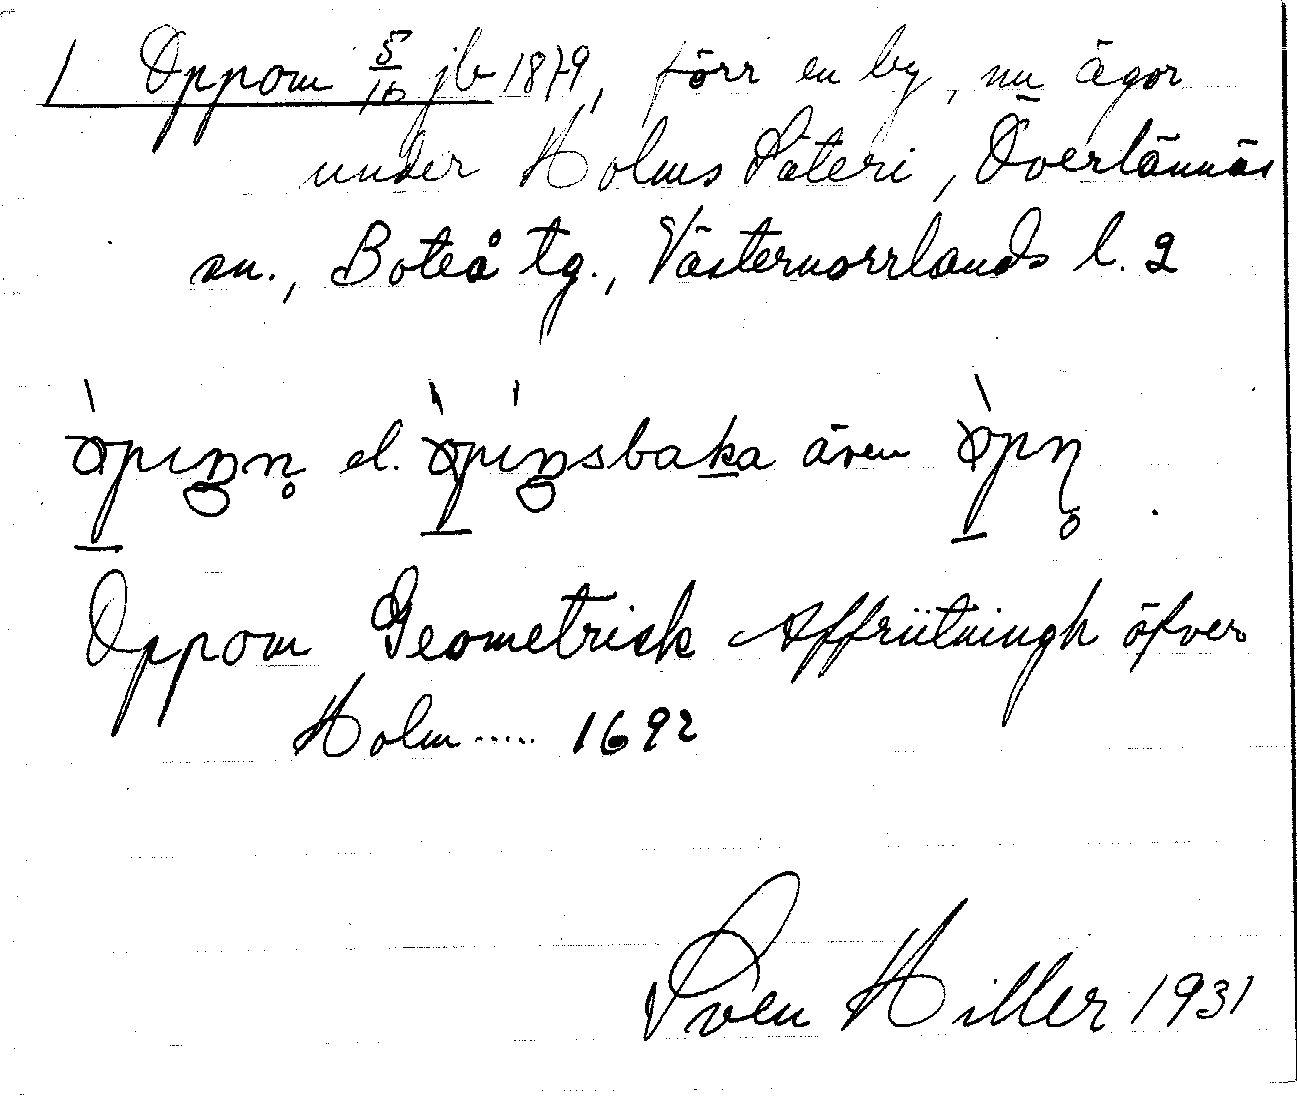 1 Oppom 5/16 jb 1879, förr en by, nu ägor
under Holms Säteri, Överlännäs
sn., Boteå tg., Västernorrlands l. 2
el. även
Oppom Geometrisk Affriitningh öfver
Holm ..... 1692
Sven Hiller 1931